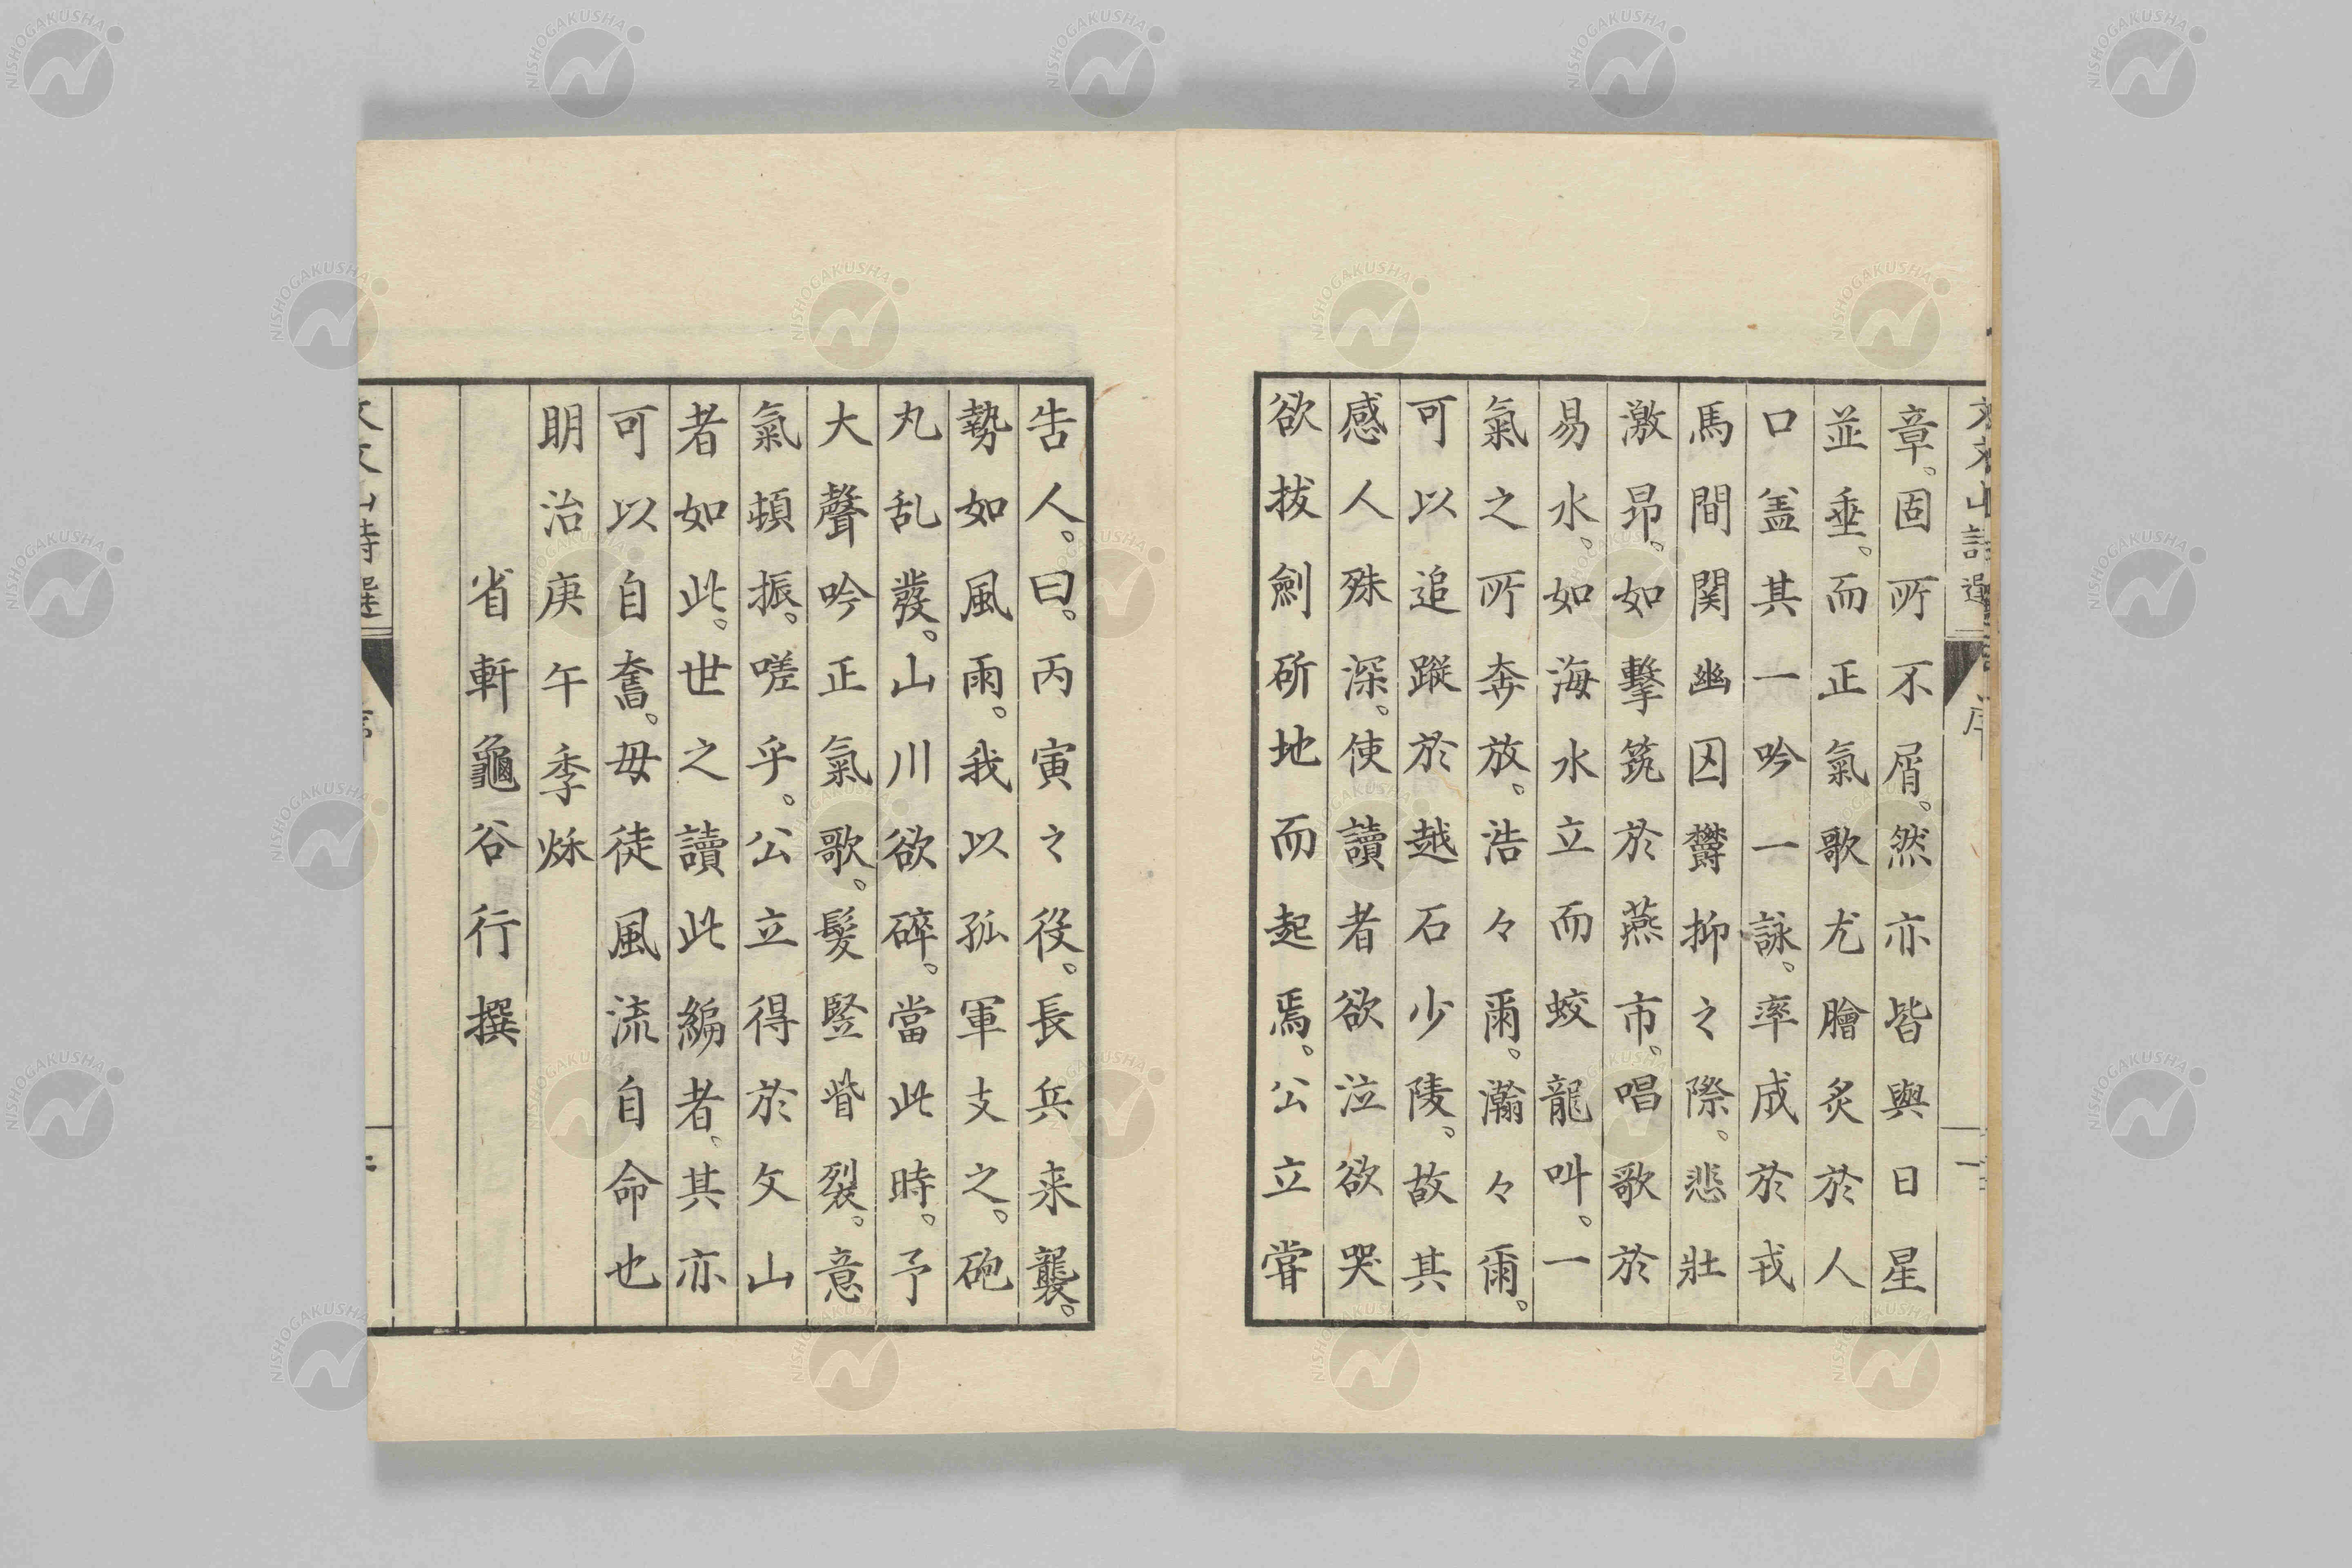 章。固所不屑。然亦皆與日星
並垂。而正氣歌尤膾炙於人
口盖其一吟一詠。率成於戎
馬間関幽囚欝抑之際。悲壯
激昂。如擊筑於燕市。唱歌於
易水。如海水立而蛟龍叫。一
氣之所奔放。浩々爾。瀚々爾。
可以追蹤於越石少陵。故其
感人殊深。使讀者欲泣欲哭
欲拔劍斫地而起焉。公立嘗
告人。曰。丙寅之役。長兵来襲。
勢如風雨。我以孤軍支之。砲
丸乱發。山川欲碎。當此時。予
大聲吟正氣歌。髮竪眥裂。意
氣頓振。嗟乎。公立得於文山
者如此。世之讀此編者。其亦
可以自奮。毋徒風流自命也
明治庚午季秌
省軒龜谷行撰
NISHOGAKUSHA